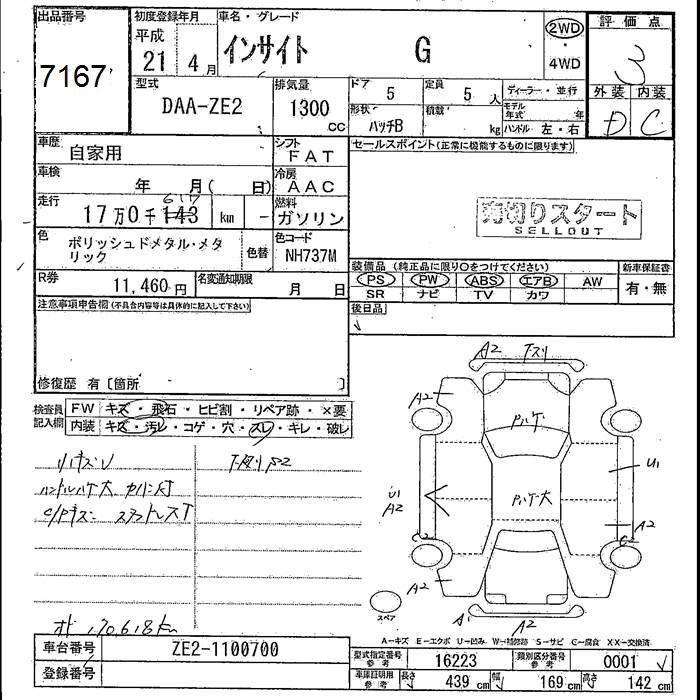 出品番号 初度登録年月 車名・グレード 2WD 評価点
平成 インサイト G ・ 3
7167 21 4月 4WD
外装 内装
型式 排気量 ドア 5 定員 5人 ディーラー・並行 D C
DAA-ZE2 1300 形状 積載 モデル年式 年
cc ハッチB kg ハンドル 左・右
車歴 自家用 シフト FAT セールスポイント(正常に機能するものに限ります)
車検 年 月( 日) 冷房 AAC
走行 617
17万0千143 km - 燃料 ガソリン 売切りスタート
SELLOUT
色 ポリッシュドメタル・メタ 色替 色コード
リック NH737M
装備品(純正品に限り〇をつけてください) 新車保証書
R券 11,460円 名変通知期限 月 日 PS PW ABS エアB AW 有・無
SR ナビ TV カワ
注意事項申告欄(不具合内容等は具体的に記入して下さい) 後日品
修復歴 有〔箇所 〕
A2 下スリ
検査員記入欄 FW キズ・飛石・ヒビ割・リペア跡・×要
内装 キズ・汚レ・コゲ・穴・スレ・キレ・破レ
A2
U1
U1
A2
A2
C2
A2
A1
A2
スペア
170618km
A-キズ E-エクボ U-凹み W-補修跡 S-サビ C-腐食 XX-交換済
車台番号 ZE2-1100700
型式指定番号 参考 16223 類別区分番号 参考 0001
登録番号 車庫証明用 参考 長さ 439cm 幅 169cm 高さ 142cm